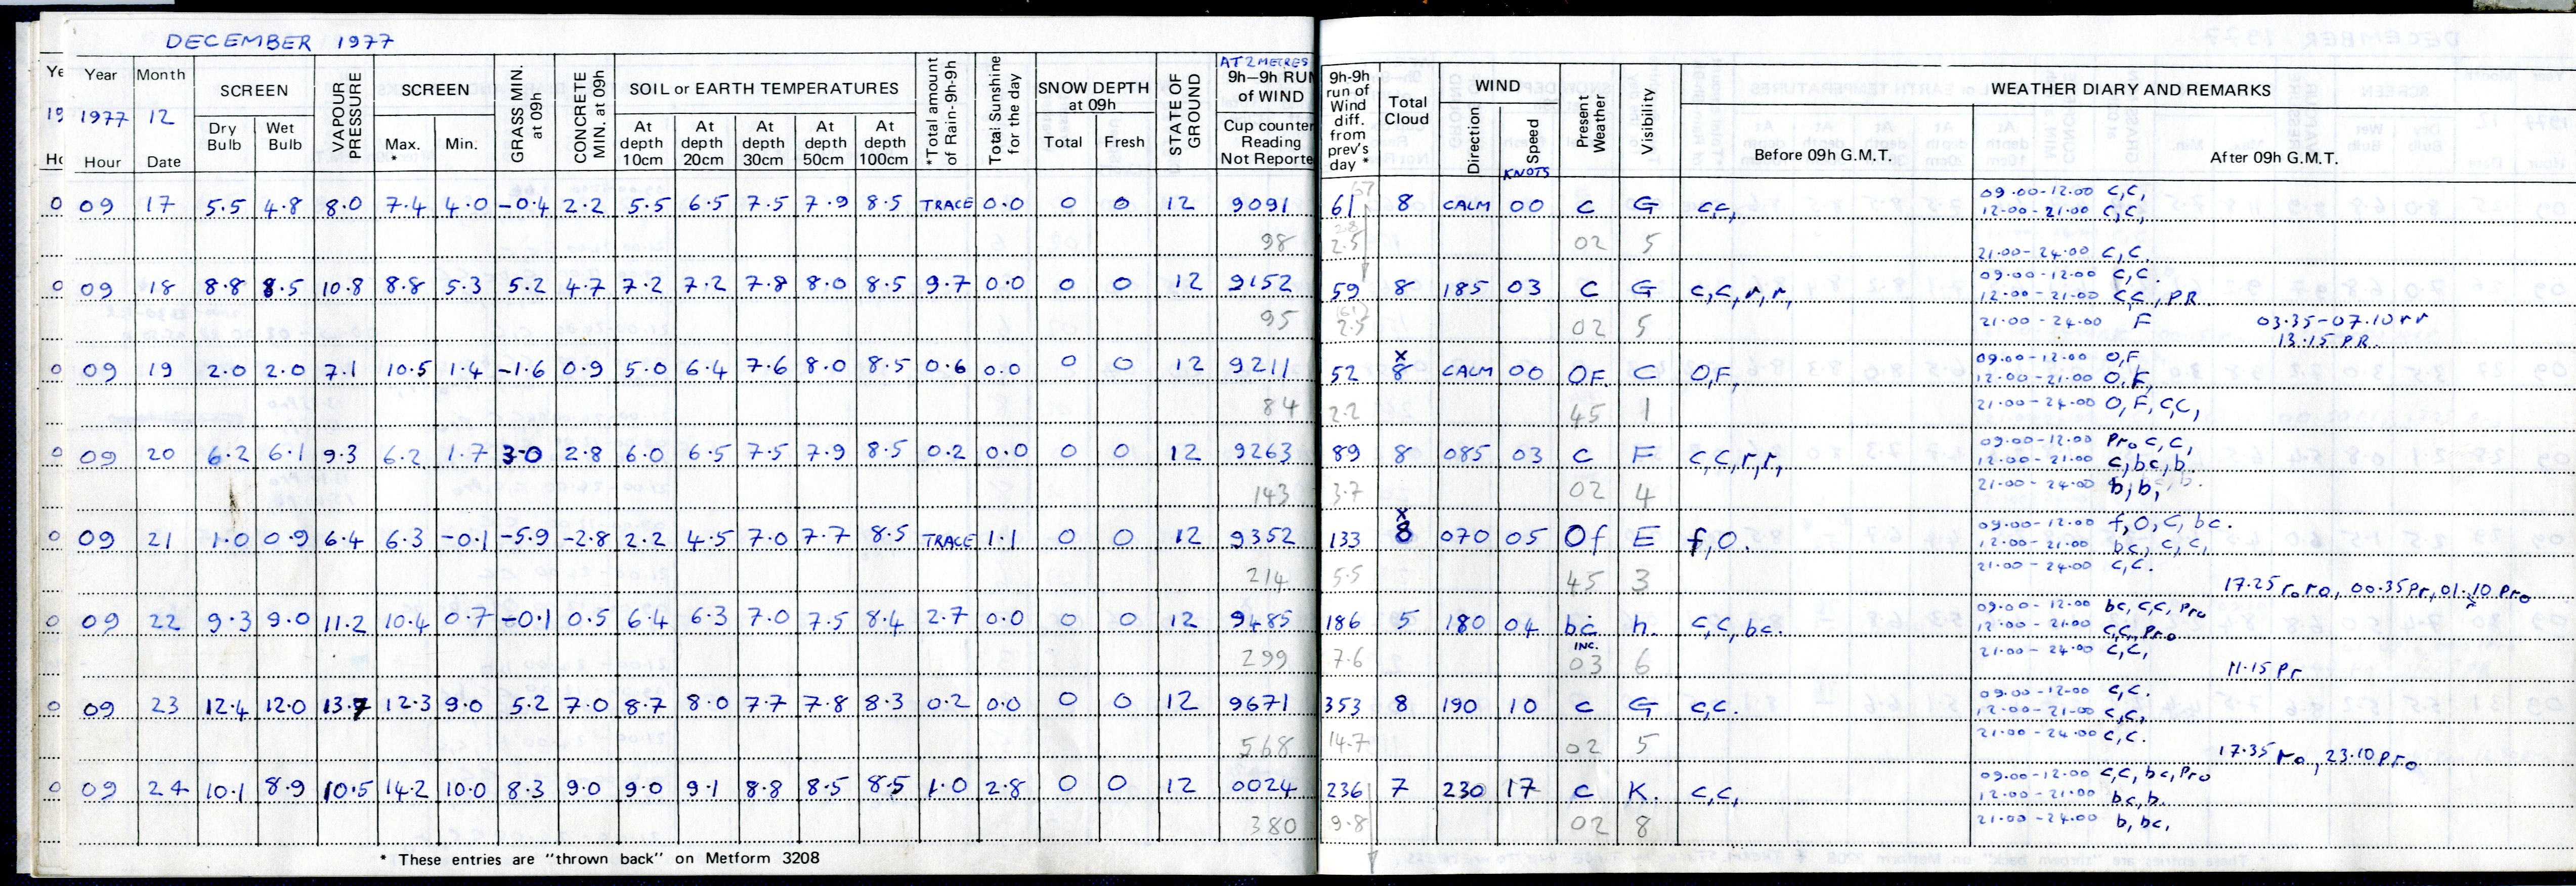 DECEMBER 1977
Ye Year Month SCREEN VAPOUR PRESSURE SCREEN GRASS MIN. at 09h CONCRETE MIN. at 09h SOIL or EARTH TEMPERATURES *Total amount of Rain-9h-9h Total Sunshine for the day SNOW DEPTH at 09h STATE OF GROUND AT 2 METRES 9h–9h RUN of WIND 9h-9h run of Wind diff. from prev's day * Total Cloud WIND Present Weather Visibility WEATHER DIARY AND REMARKS
19 1977 12 Dry Bulb Wet Bulb Max. * Min. At depth 10cm At depth 20cm At depth 30cm At depth 50cm At depth 100cm Total Fresh Cup counter Reading Not Reporte Direction Speed KNOTS Before 09h G.M.T. After 09h G.M.T.
Ho Hour Date
0 09 17 5.5 4.8 8.0 7.4 4.0 -0.4 2.2 5.5 6.5 7.5 7.9 8.5 TRACE 0.0 0 0 12 9091 61 8 CALM 00 C G c,c, 09.00-12.00 c,c,
12.00-21.00 c,c,
98 2.5 02 5 21.00-24.00 c,c.
0 09 18 8.8 8.5 10.8 8.8 5.3 5.2 4.7 7.2 7.2 7.8 8.0 8.5 9.7 0.0 0 0 12 9152 59 8 185 03 C G c,c,r,r, 09.00-12.00 c,c.
12.00-21.00 c,c,PR
95 2.5 02 5 21.00-24.00 F 03.35-07.10 rr
13.15 PR.
0 09 19 2.0 2.0 7.1 10.5 1.4 -1.6 0.9 5.0 6.4 7.6 8.0 8.5 0.6 0.0 0 0 12 9211 52 x 8 CALM 00 OF C O,F, 09.00-12.00 O,F
12.00-21.00 O,F,
84 2.2 45 1 21.00-24.00 O,F,c,c,
0 09 20 6.2 6.1 9.3 6.2 1.7 3.0 2.8 6.0 6.5 7.5 7.9 8.5 0.2 0.0 0 0 12 9263 89 8 085 03 C F c,c,r,r, 09.00-12.00 Pro c,c,
12.00-21.00 c,bc,b.
143 3.7 02 4 21.00-24.00 b,b,
0 09 21 1.0 0.9 6.4 6.3 -0.1 -5.9 -2.8 2.2 4.5 7.0 7.7 8.5 TRACE 1.1 0 0 12 9352 133 x 8 070 05 Of E f,O. 09.00-12.00 f,O,c,bc.
12.00-21.00 bc,c,c,
214 5.5 45 3 21.00-24.00 c,c.
17.25 roro, 00.35 Pr, 01.10 Pro
0 09 22 9.3 9.0 11.2 10.4 0.7 -0.1 0.5 6.4 6.3 7.0 7.5 8.4 2.7 0.0 0 0 12 9485 186 5 180 04 bc INC. h. c,c,bc. 09.00-12.00 bc,c,c,Pro
12.00-21.00 c,c,Pro
299 7.6 03 6 21.00-24.00 c,c,
11.15 Pr
0 09 23 12.4 12.0 13.7 12.3 9.0 5.2 7.0 8.7 8.0 7.7 7.8 8.3 0.2 0.0 0 0 12 9671 353 8 190 10 C G c,c. 09.00-12.00 c,c.
12.00-21.00 c,c.
568 14.7 02 5 21.00-24.00 c,c.
17.35 ro, 23.10 Pro
0 09 24 10.1 8.9 10.5 14.2 10.0 8.3 9.0 9.0 9.1 8.8 8.5 8.5 1.0 2.8 0 0 12 0024 236 7 230 17 C K. c,c, 09.00-12.00 c,c,bc,Pro
12.00-21.00 bc,b.
380 9.8 02 8 21.00-24.00 b,bc,
* These entries are "thrown back" on Metform 3208